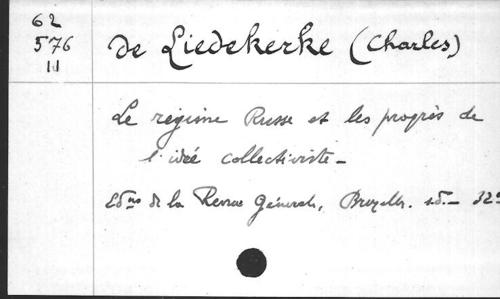 62
576
11
de Liedekerke (Charles)
Le régime Russe et les progrès de
l'idée collectiviste -
Edns de la Revue Générale, Bruxelles. s.d. - 32